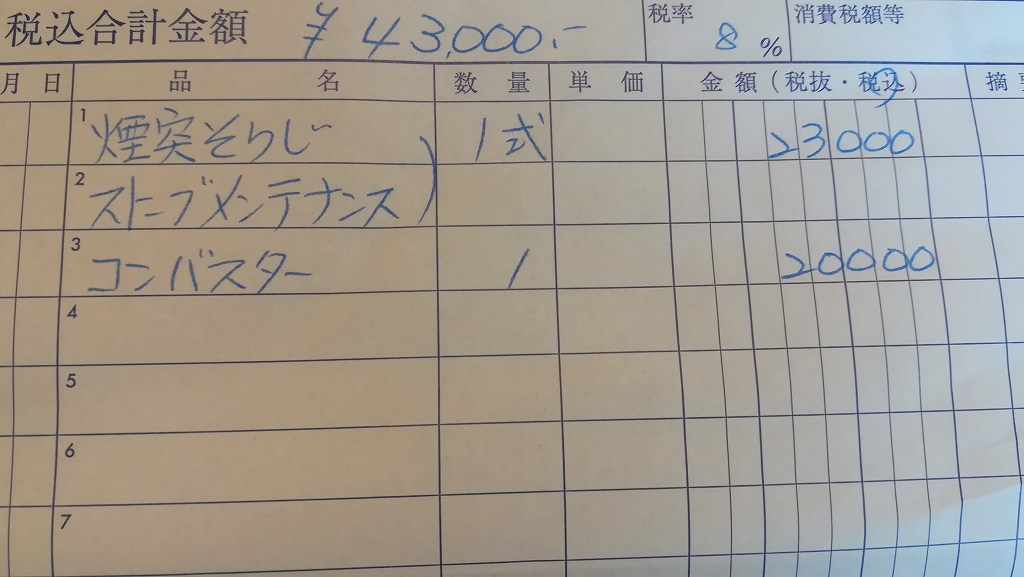 税込合計金額 ¥43,000.- 税率 8% 消費税額等
月 日 品 名 数 量 単 価 金 額(税抜・税込) 摘
1 煙突そうじ 1式 23000
2 ストーブメンテナンス
3 コンバスター 1 20000
4
5
6
7